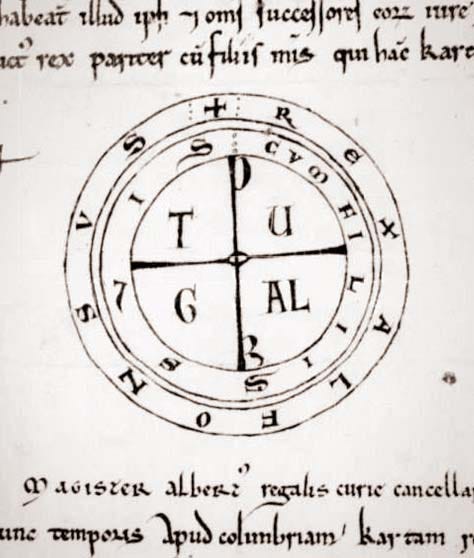 habeat̄ illud ipſi ⁊ om̄ſ ſucceſſoreſ eoꝝ iure
rex pariter cū filiis mīs qui hāc kart
+ REX ALFONSVS
CVM FILIIS S7IS
P
T U
G AL
R
Magister alberꞇ⁹ regalis curie cancella
unc temporis Apud colunbriam kartam